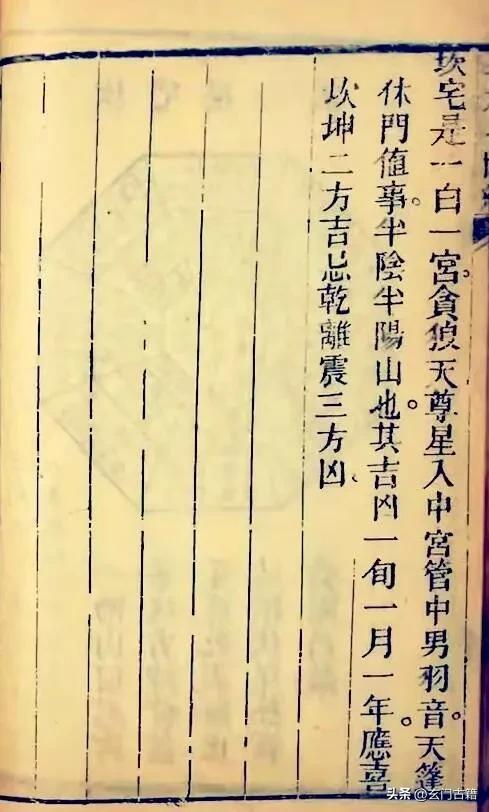 坎宅是一白一宮。貪狼天尊星入中宮管中男羽音。天篷
休門值事。半陰半陽山也。其吉凶一旬一月一年。應喜
坎坤二方吉忌乾離震三方凶。
头条 @玄门古籍